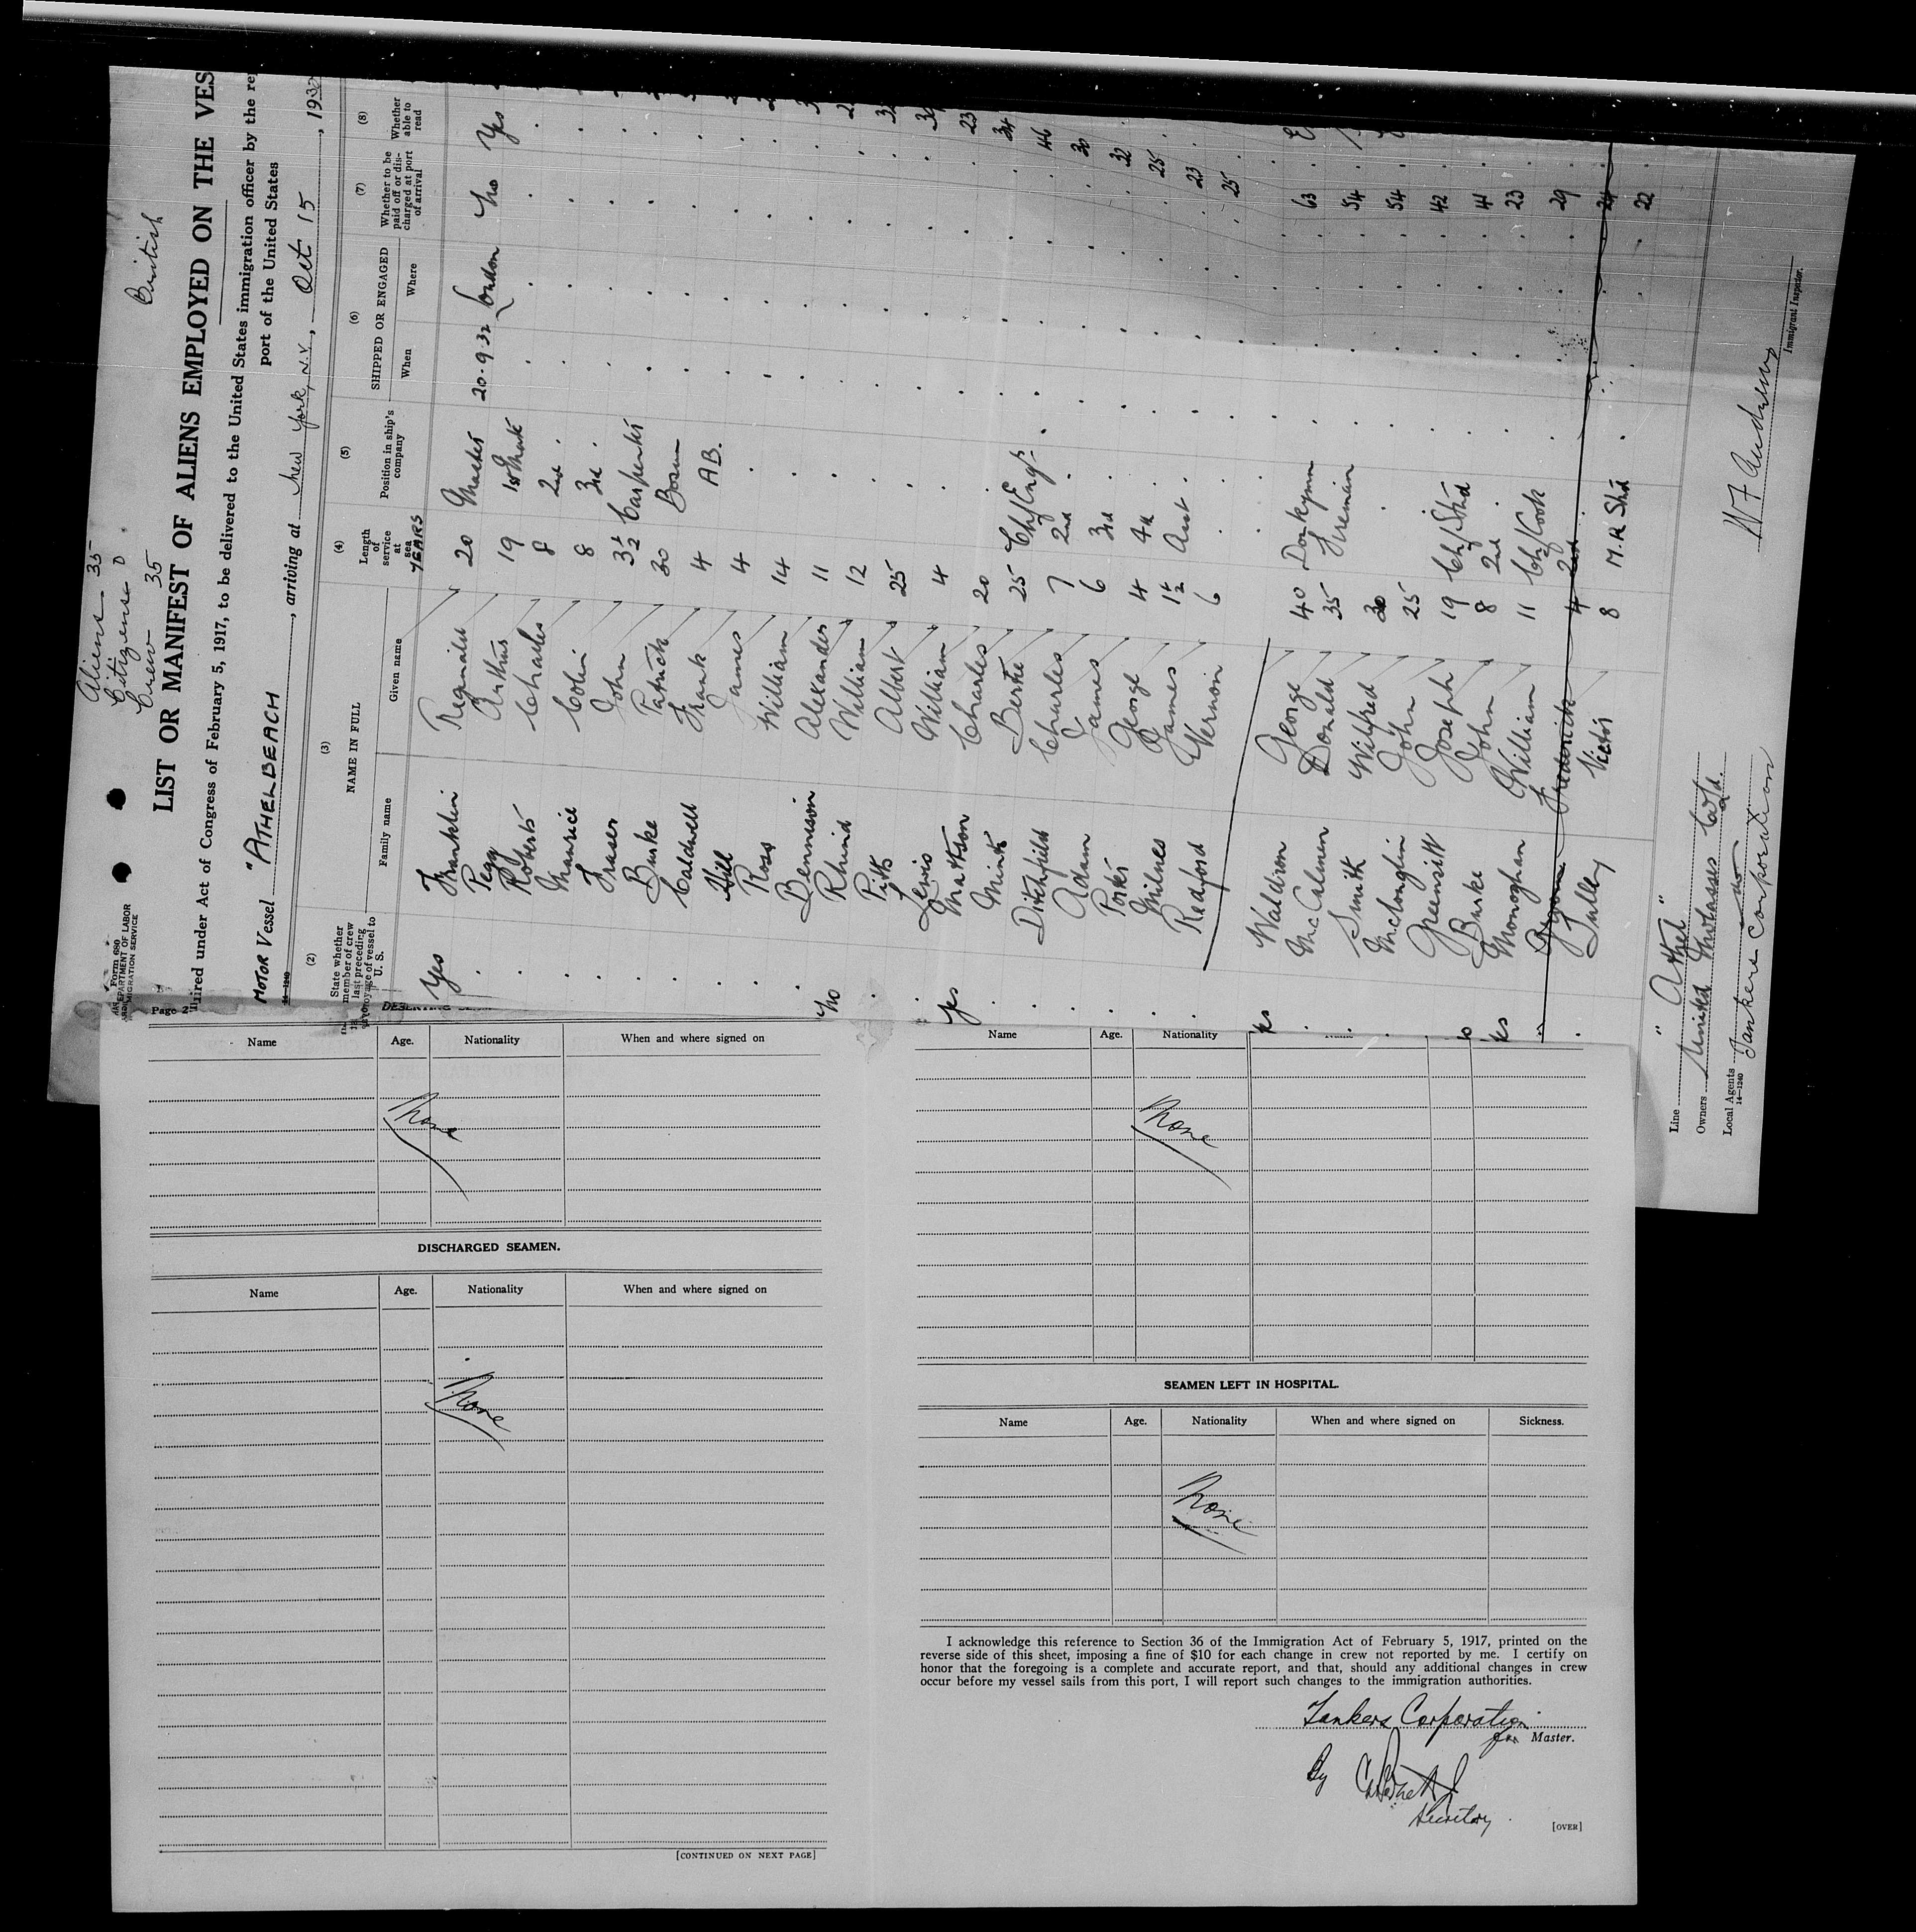 Aliens 35
Citizens 0
Crew 35
British
Form 680
DEPARTMENT OF LABOR
IMMIGRATION SERVICE
LIST OR MANIFEST OF ALIENS EMPLOYED ON THE VES
uired under Act of Congress of February 5, 1917, to be delivered to the United States immigration officer by the re
port of the United States
MOTOR Vessel "ATHELBEACH", arriving at New York, N.Y., Oct 15, 1932
14—1240
(2) (3) (4) (5) (6) (7) (8)
State whether member of crew last preceding voyage of vessel to U. S.
NAME IN FULL
Family name Given name
Length of service at sea YEARS
Position in ship's company
SHIPPED OR ENGAGED
When Where
Whether to be paid off or discharged at port of arrival
Whether able to read
Yes Franklin Reginald 20 Master 20.9.32 London No Yes
. Pegg Arthur 19 1st Mate
. Roberts Charles 8 2nd .
. Maurice Colin 8 3rd .
. Fraser John 3 1/2 Carpenter
. Burke Patrick 30 Bosun
. Caldwell Frank 4 A.B.
. Hill James 4 .
. Ross William 14 .
. Bennison Alexander 11 .
No Rhind William 12 .
. Pitts Albert 25 .
. Lewis William 4 .
Yes Mattson Charles 20 .
. Mints Bertie 25 Ch/Eng'r
. Ditchfield Charles 7 2nd .
. Adam James 6 3rd .
. Porter George 4 4th .
. Milnes James 1 1/2 Asst
. Redford Vernon 6 .
Yes Waldron George 40 Donkeyman 63
. McCalmen Donald 35 Fireman 54
. Smith Wilfred 30 54
. McLoughlin John 25 42
Greensitt Joseph 19 Ch/Std 41
Burke John 8 2nd . 23
Yes Monoghan William 11 Ch/Cook 29
" Frederick 4 2nd 24
. Tulley Victor 8 M.R Std 22
23
34
46
30
32
25
23
25
Line "Athel"
Owners United Molasses Co Ld.
Local Agents Tankers Corporation
14—1240
W F Andrews
Immigrant Inspector.
Page 2
Name Age. Nationality When and where signed on
None
DISCHARGED SEAMEN.
Name Age. Nationality When and where signed on
None
[CONTINUED ON NEXT PAGE]
Name Age. Nationality
None
SEAMEN LEFT IN HOSPITAL.
Name Age. Nationality When and where signed on Sickness.
None
I acknowledge this reference to Section 36 of the Immigration Act of February 5, 1917, printed on the
reverse side of this sheet, imposing a fine of $10 for each change in crew not reported by me. I certify on
honor that the foregoing is a complete and accurate report, and that, should any additional changes in crew
occur before my vessel sails from this port, I will report such changes to the immigration authorities.
Tankers Corporation
for Master.
By
Secretary
[OVER]